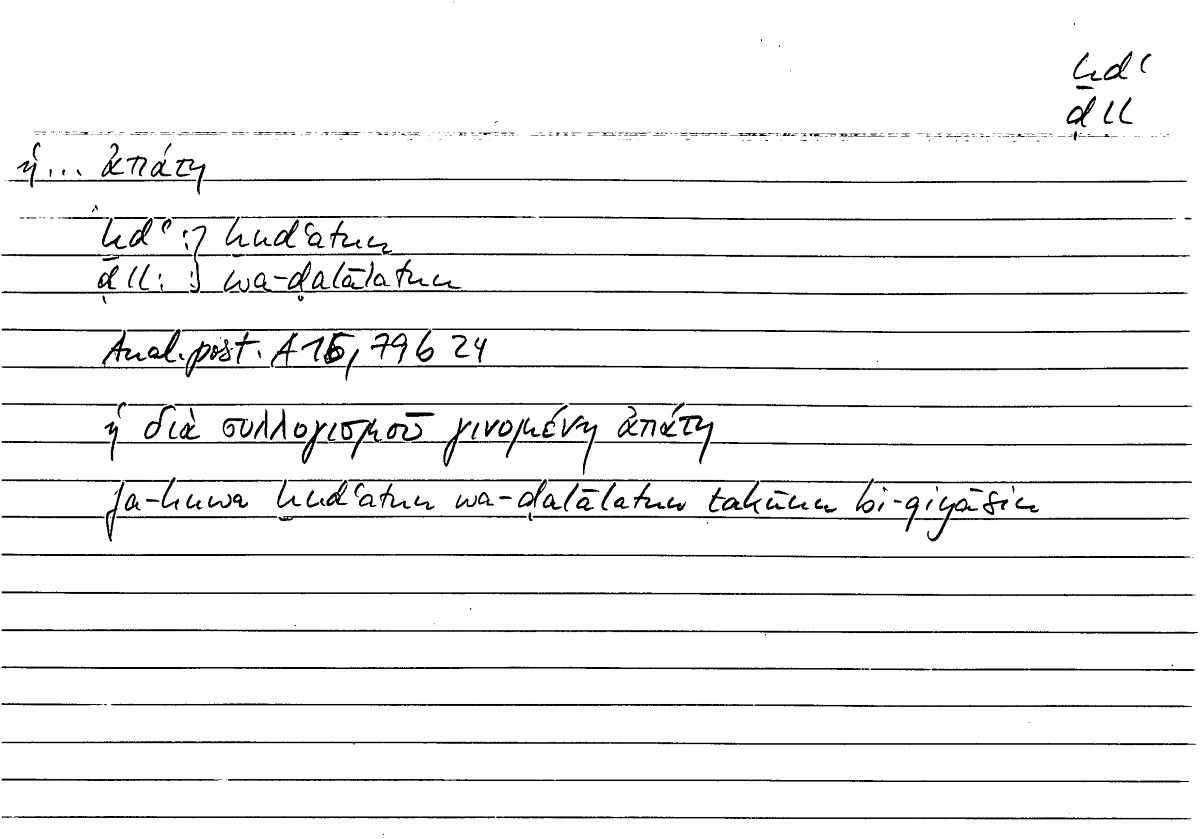 ḫdʿ
ḍll
ἡ... ἀπάτη
ḫdʿ :} ḫudʿatun
ḍll: } wa-ḍalālatun
Anal. post. A 16, 79 b 24
ἡ διὰ συλλογισμοῦ γινομένη ἀπάτη
fa-huwa ḫudʿatun wa-ḍalālatun takūnu bi-qiyāsin